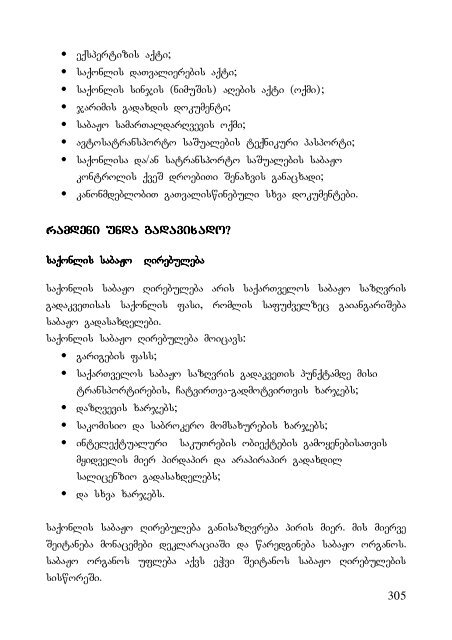 • ექსპერტიზის აქტი;
• საქონლის დათვალიერების აქტი;
• საქონლის სინჯის (ნიმუშის) აღების აქტი (ოქმი);
• ჯარიმის გადახდის დოკუმენტი;
• საბაჟო სამართალდარღვევის ოქმი;
• ავტოსატრანსპორტო საშუალების ტექნიკური პასპორტი;
• საქონლისა და/ან სატრანსპორტო საშუალების საბაჟო
კონტროლის ქვეშ დროებითი შენახვის განაცხადი;
• კანონმდებლობით გათვალისწინებული სხვა დოკუმენტები.
რამდენი უნდა გადავიხადო?
საქონლის საბაჟო ღირებულება
საქონლის საბაჟო ღირებულება არის საქართველოს საბაჟო საზღვრის
გადაკვეთისას საქონლის ფასი, რომლის საფუძველზეც გაიანგარიშება
საბაჟო გადასახდელები.
საქონლის საბაჟო ღირებულება მოიცავს:
• გარიგების ფასს;
• საქართველოს საბაჟო საზღვრის გადაკვეთის პუნქტამდე მისი
ტრანსპორტირების, ჩატვირთვა-გადმოტვირთვის ხარჯებს;
• დაზღვევის ხარჯებს;
• საკომისიო და საბროკერო მომსახურების ხარჯებს;
• ინტელექტუალური საკუთრების ობიექტების გამოყენებისათვის
მყიდველის მიერ პირდაპირ და არაპირაპირ გადახდილ
სალიცენზიო გადასახდელებს;
• და სხვა ხარჯებს.
საქონლის საბაჟო ღირებულება განისაზღვრება პირის მიერ. მის მიერვე
შეიტანება მონაცემები დეკლარაციაში და წარედგინება საბაჟო ორგანოს.
საბაჟო ორგანოს უფლება აქვს ეჭვი შეიტანოს საბაჟო ღირებულების
სისწორეში.
305